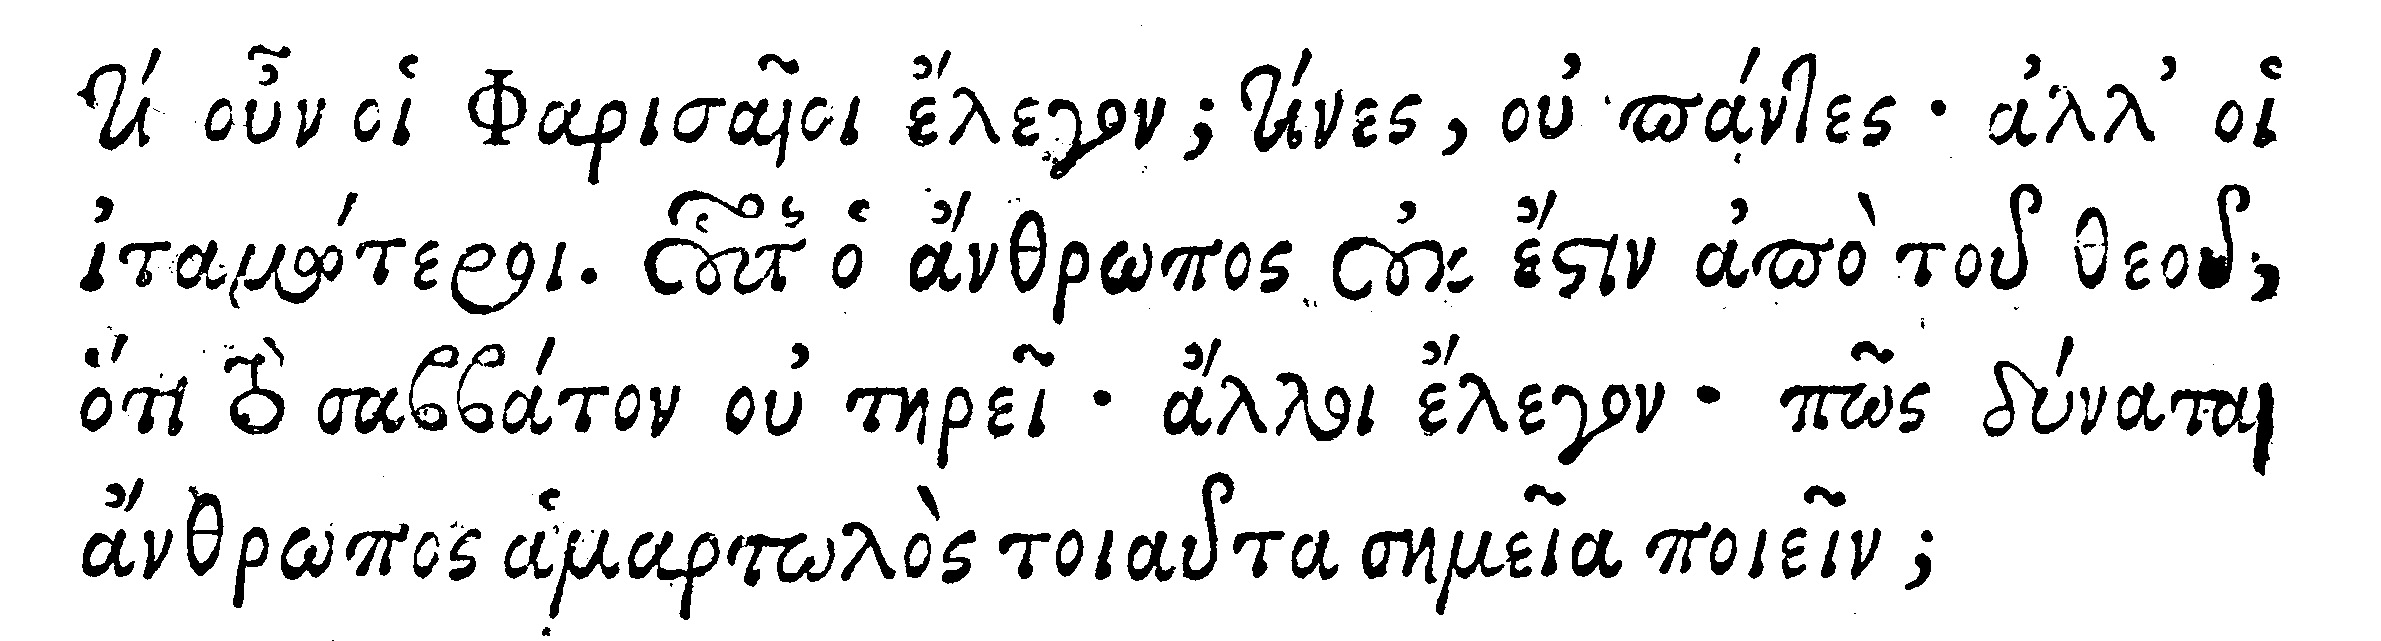 τί οὖν οἱ Φαρισαῖοι ἔλεγον; τίνες, οὐ πάντες · ἀλλ' οἱ
ἰταμώτεροι. οὗτος ὁ ἄνθρωπος οὐκ ἔστιν ἀπὸ τοῦ θεοῦ,
ὅτι τὸ σαββάτον οὐ τηρεῖ · ἄλλοι ἔλεγον · πῶς δύναται
ἄνθρωπος ἁμαρτωλὸς τοιαῦτα σημεῖα ποιεῖν ;